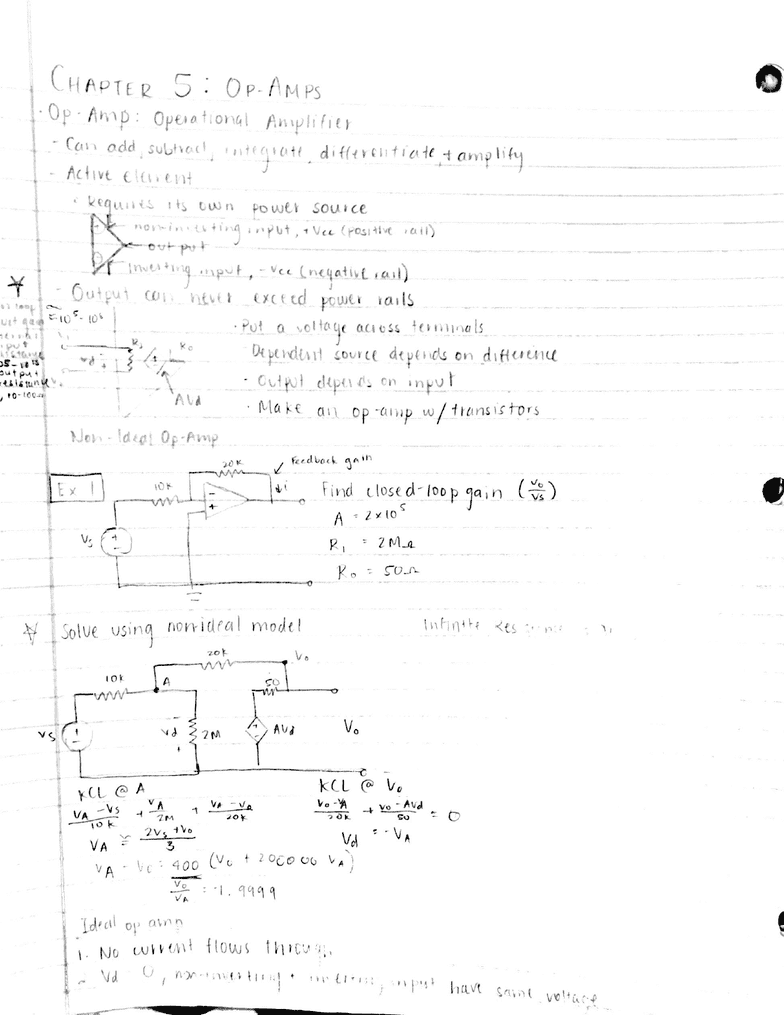 CHAPTER 5: OP-AMPS
· Op-Amp: Operational Amplifier
- Can add, subtract, integrate, differentiate, + amplify
- Active Element
· Requires its own power source
noninverting input, +Vcc (positive rail)
output
inverting input, -Vcc (negative rail)
- Output can never exceed power rails
≈10⁵-10⁸
· Put a voltage across terminals
Dependent source depends on difference
· Output depends on input
· Make an op-amp w/ transistors
AVd
Non-Ideal Op-Amp
Ex 1
10K
20K
Feedback gain
i
Vs
Find closed-loop gain (Vo/Vs)
A = 2×10⁵
R₁ = 2MΩ
Ro = 50Ω
☆ Solve using nonideal model
Infinite
20K
Vo
10K
A
50
Vs
Vd
2M
AVd
Vo
KCL @ A
KCL @ Vo
VA-Vs/10K + VA/2M + VA-Vo/20K
Vo-VA/20K + Vo-AVd/50 = 0
VA ≅ 2Vs+Vo/3
Vd = -VA
VA - Vo = 400 (Vo + 200000 VA)
Vo/VA = -1.9999
Ideal op amp
1. No current flows through
Vd = 0, non-inverting + inverting input have same voltage